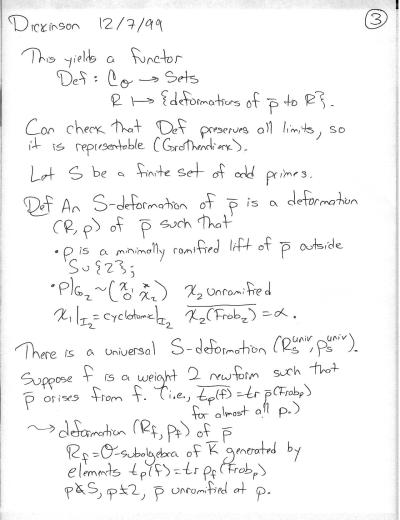 Dickinson 12/7/99 ③
This yields a functor
Def : C_O → Sets
R ↦ {deformations of ρ̄ to R}.
Can check that Def preserves all limits, so
it is representable (Grothendieck).
Let S be a finite set of odd primes.
Def An S-deformation of ρ̄ is a deformation
(R, ρ) of ρ̄ such that
• ρ is a minimally ramified lift of ρ̄ outside
S ∪ {2};
• ρ|_{G_2} ~ (χ_1 * / 0 χ_2) χ_2 unramified
χ_1|_{I_2} = cyclotomic|_{I_2} \overline{χ_2(Frob_2)} = α.
There is a universal S-deformation (R_S^{univ}, ρ_S^{univ}).
Suppose f is a weight 2 newform such that
ρ̄ arises from f. (i.e., \overline{t_p(f)} = tr ρ̄(Frob_p)
for almost all p.)
⇝ deformation (R_f, ρ_f) of ρ̄
R_f = O-subalgebra of K̄ generated by
elements t_p(f) = tr ρ_f(Frob_p)
p∉S, p≠2, ρ̄ unramified at p.